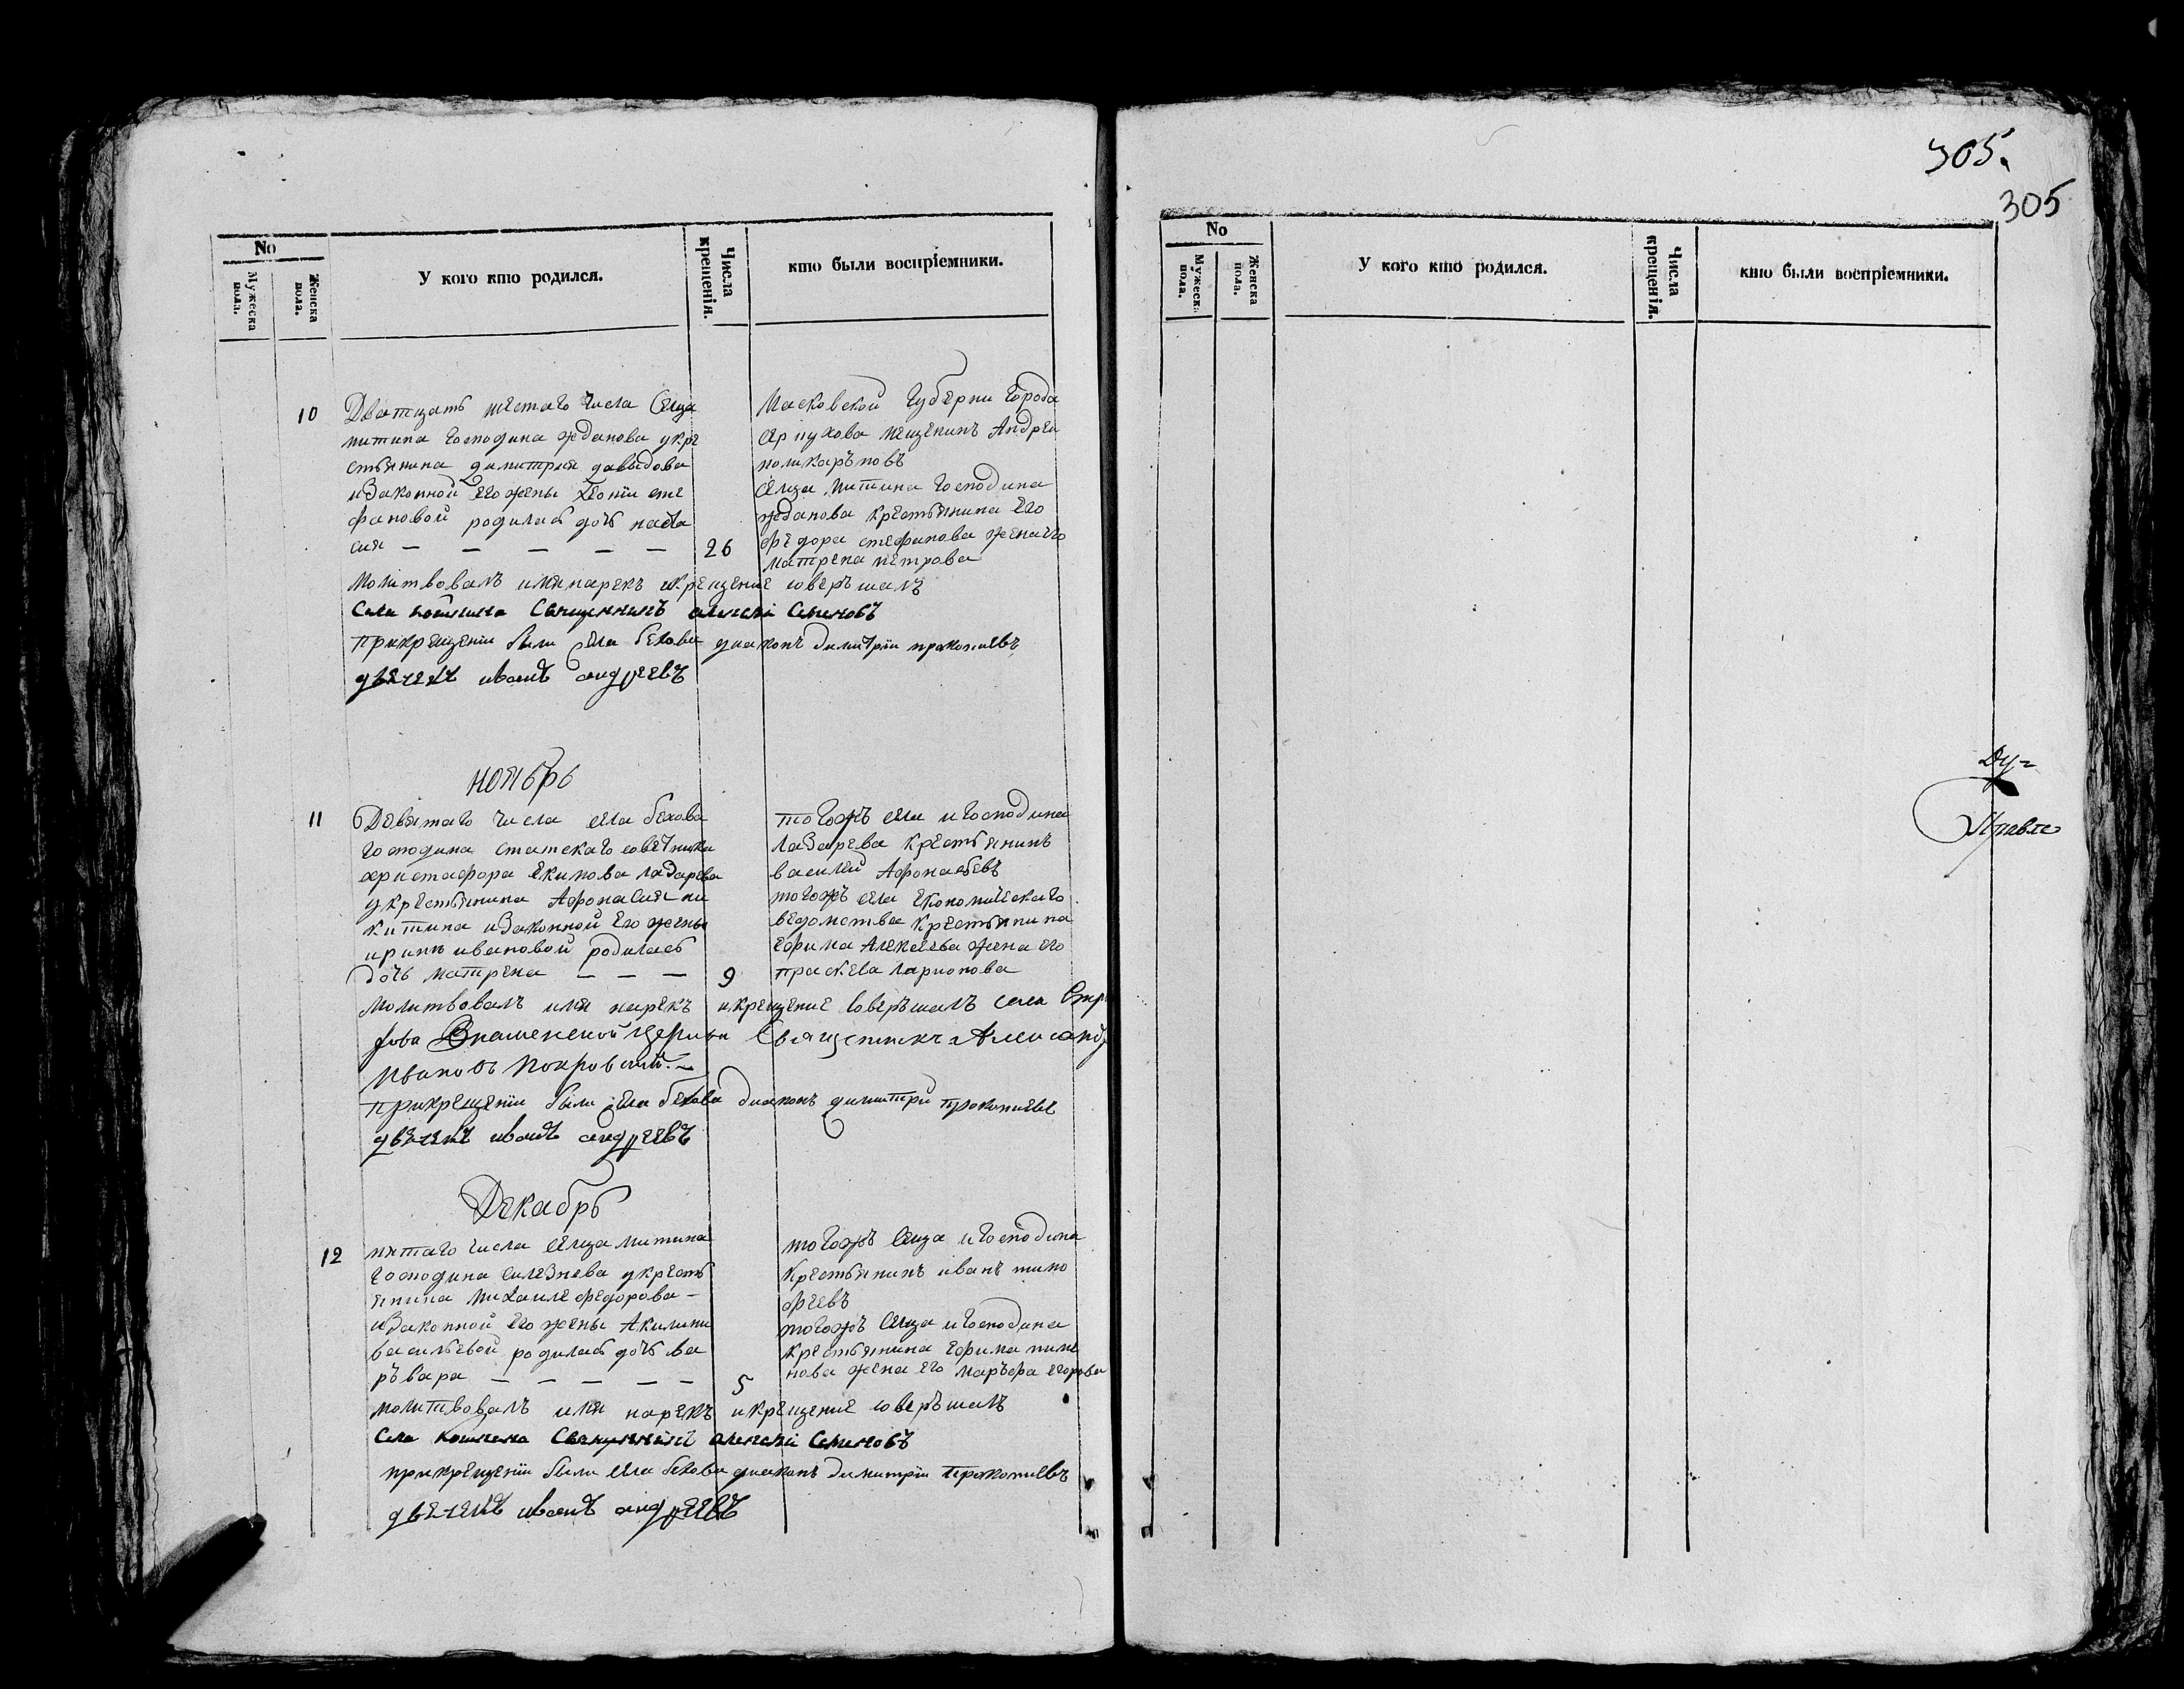 No
Мужеска пола.
Женска пола.
У кого кто родился.
Числа крещенія.
кто были воспріемники.
10
Дватцать шестаго числа Селца
митина Господина жданова укре
стьянина димитрия давыдова
изаконной его жены Хеонiи сте
фановой родилась дочь наста
сия — — — — —
26
Масковской Губерни Города
серпухова мещенинъ Андреи
поликаръповъ
селца митина Господина
жданова крестьянина Его
федора стефанова жена его
матрена петрова
молитвовалъ имя нарекъ икрещение соверъшалъ
Села Священникъ алексеи Семеновъ
прикрещении были села бехова диаконъ димитрiи пракопиевъ
дьячекъ иванъ андреевъ
ноябрь
11
Девятаго числа села бехова
господина статскаго советника
христафора Екимова лазарева
укрестьянина Афонасия ни
китина изаконной Его жены
ирины ивановой родилась
дочь матрена — — —
9
тогожъ села игосподина
лазарева крестьянинъ
василей Афонасьевъ
тогожъ села Економическаго
ведомства крестьянина
Ефима Алексеева жена его
праскева ларионова
молитвовалъ имя нарекъ икрещение соверъшалъ села
Знаменской церкви Священникъ
Ивановъ Покровский. —
прикрещении были села бехова диаконъ димитри пракопиевъ
дьячекъ иванъ андреевъ
Декабрь
12
пятаго числа селца митина
господина селезнева укресть
янина михаиле федорова —
изаконной его жены Акилины
васильевой родилась дочь ва
ръвара — — — — —
5
тогожъ Селца игосподина
крестьянинъ иванъ тимо
феевъ
тогожъ Селца игосподина
крестьянина Ефима пиме
нова жена его маръфа егорова
молитвовалъ имя нарекъ икрещение соверъшалъ
Села Священникъ алексеи Семеновъ
прикрещении были села бехова диаконъ димитрiи пракопиевъ
дьячекъ иванъ андреевъ
305.
305
No
Мужеска пола.
Женска пола.
У кого кто родился.
Числа крещенія.
кто были воспріемники.
Ду-